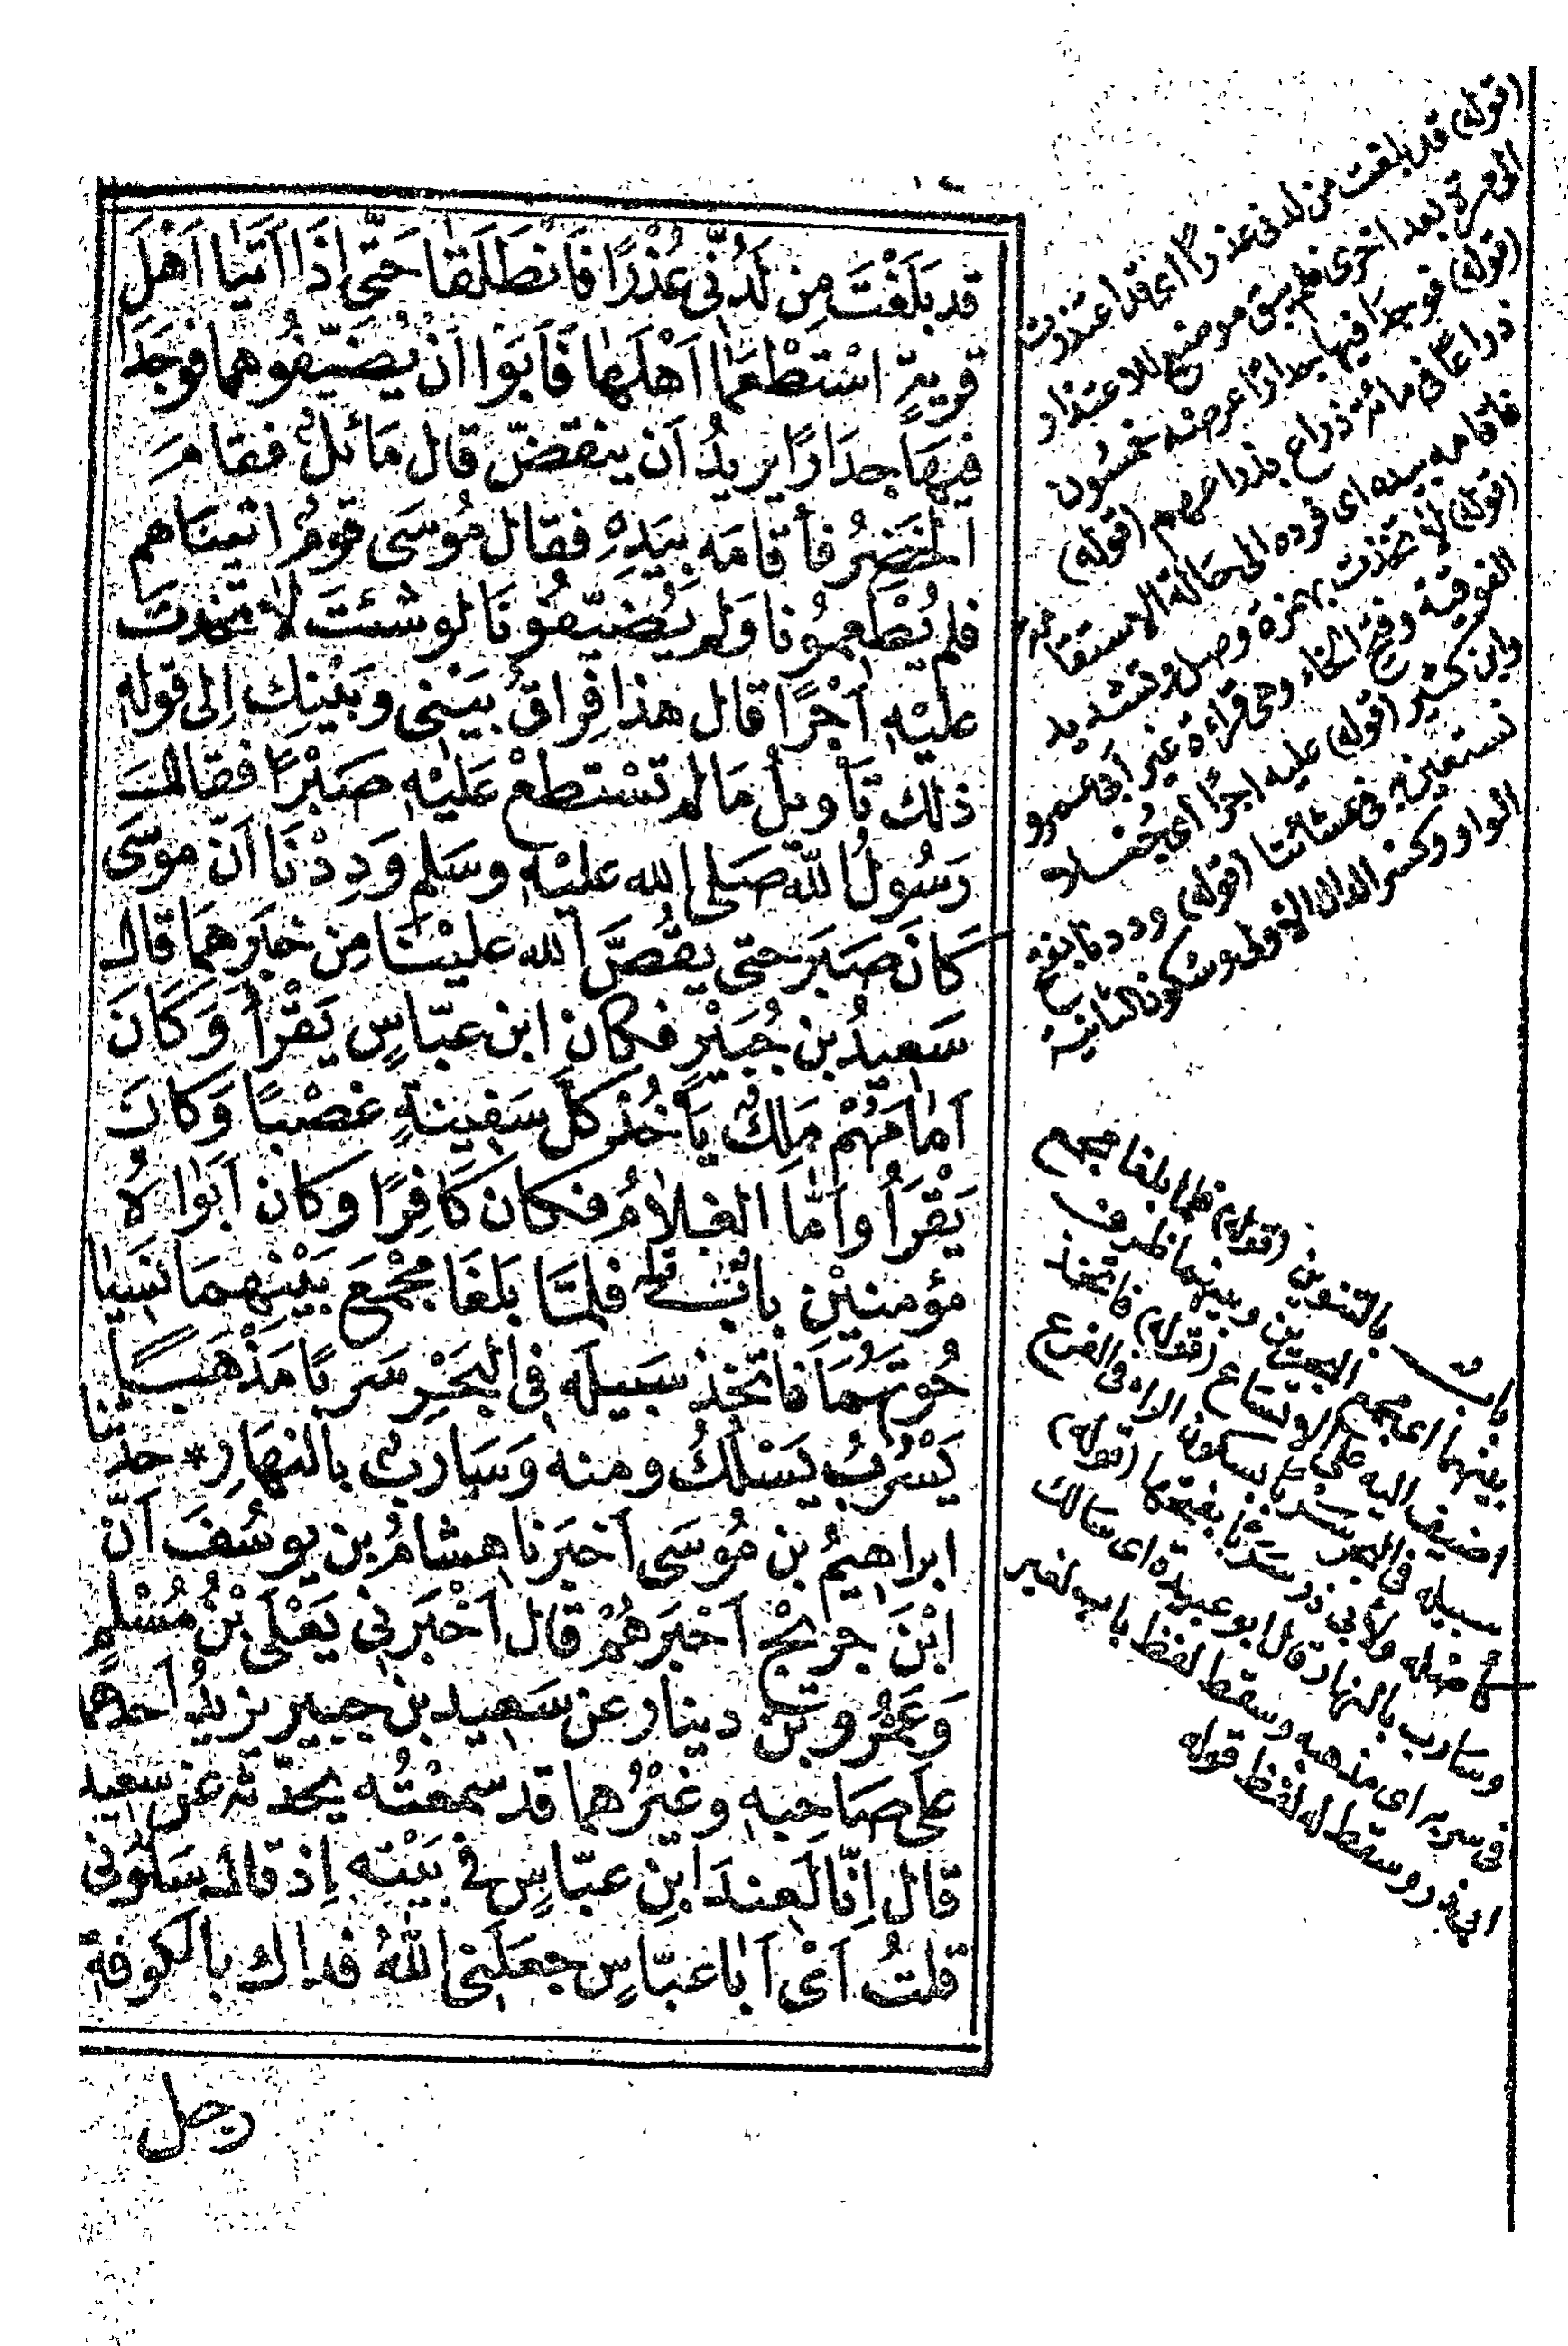 قد بَلَغْتَ مِن لَدُنّى عُذْرًا فَانْطَلَقَا حَتَّى اِذَا اَتَيَا اَهْلَ
قرية اسْتَطْعَمَا اَهْلَهَا فَاَبَوْا اَنْ يُضَيِّفُوهما فوَجَدَا
فيهَا جِدَارًا يريدُ اَن ينقضّ قال مَائلٌ فقامَ
الخَضِرُ فأقامَه بيَدِهِ فقال مُوسَى قومٌ اتينَاهم
فلم يُطْعِمُونا وَلم يُضَيّفُونَا لو شئتَ لاتخذت
عليْهِ اَجْرًا قال هذا فِراقُ بيَنْى وبَيْنِكَ اِلى قوله
ذلك تَأويلُ مَا لم تسْتطعْ عَليْهِ صَبْرًا فقالَ
رَسُولُ الله صَلى الله عليْهِ وسَلم وَدِدْنَا اَنّ موسَى
كَانَ صَبَرَ حتى يقُصَّ الله عليْنَا مِن خبَرِهمَا قال
سَعيدُ بن جُبَيْرٍ فكان ابن عبّاسٍ يَقْرأ وَكَانَ
اَمَامَهُمْ مَلِكٌ يَأخُذ كلَّ سَفِينةٍ غصْبًا وَكانَ
يَقْرَأُ وَاَمَّا الغلامُ فكان كَافِرًا وَكان اَبَوَاهُ
مؤمنَيْنِ بابُ قوله فلمَّا بَلَغَا مجْمَعَ بَيْنهِمَا نَسِيَا
حُوتَهُمَا فاتّخذ سَبيلَه فِى البَحْرِ سَرَبًا مَذْهَبًا
يَسْرُبُ يَسْلُكُ ومنه وَسَاربٌ بالنهَارِ * حدثنا
ابراهِيمُ بن مُوسَى اَخبَرنا هشامُ بن يوسُفَ اَنّ
ابْنَ جريجٍ اَخبَرهُمْ قال اَخْبَرَنِى يَعْلَى بْنُ مُسْلِمٍ
وَعَمْرُو بْنُ دينار عن سَعِيد بن جبير يزيدُ احدهما
عَلى صَاحِبهِ وغيْرُهما قد سمعْتُه يحدّثه عن سعيد
قال اِنّا لَعِندَ ابنِ عبّاسٍ في بَيْته اِذ قال سَلُونى
قلتُ اَىْ اَبَا عبّاسٍ جعَلَنِى اللهُ فداك بالكوفة
رجل
(قوله) قد بلغت من لدنى عذرًا اى قد اعتذرت
الىّ مرة بعد اخرى فلم يبق موضع للاعتذار
(قوله) فوجدا فيها جدارًا عرضه خمسون
ذراعًا فى مائة ذراع بذراعهم (قوله)
فاقامه بيده اى فرده الى حالة الاستقامة
(قوله) لاتخذت بهمزة وصل وتشديد
الفوقية وفتح الخاء وهى قراءة غير ابى عمرو
وابن كثير (قوله) عليه اجرًا اى جُعلا
نستعين به فى عشائنا (قوله) وددنا بفتح
الواو وكسر الدال الاولى وسكون الثانية
باب بالتنوين (قوله) فلما بلغا مجمع
بينهما اى مجمع البحرين وبينهما ظرف
اضيف اليه على الاتساع (قوله) فاتخذ
سبيله فى البحر سربًا بسكون الراء فى الفرع
كأصله ولأبى ذر سربًا بفتحها (قوله)
وسارب بالنهار قال ابو عبيدة اى سالك
فى سربه اى مذهبه وسقط لفظ باب لغير
ابى ذر وسقط له لفظ قوله